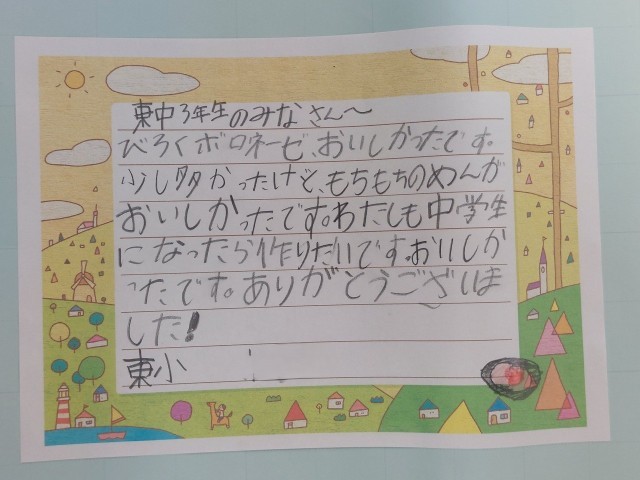 東中3年生のみなさん〜
びろくボロネーゼ、おいしかったです。
少し多かったけど、もちもちのめんが
おいしかったです。わたしも中学生
になったら作りたいです。おいしか
ったです。ありがとうございま
した!
東小